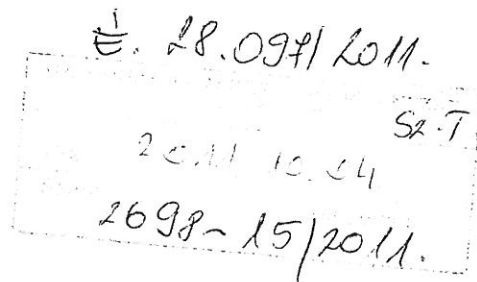 É. 28.097/2011.
Sz-T
2011 10. 04
2698-15/2011.